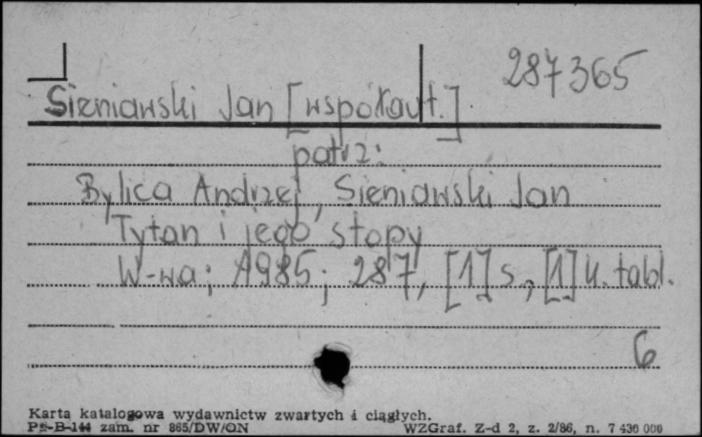 287365
Sieniawski Jan [współaut.]
patrz:
Bylica Andrzej, Sieniawski Jan
Tytan i jego stopy
W-wa; 1985; 287, [1] s., [1] k. tabl.
6
Karta katalogowa wydawnictw zwartych i ciągłych.
Ps-B-144 zam. nr 865/DW/ON WZGraf. Z-d 2, z. 2/86, n. 7 430 000